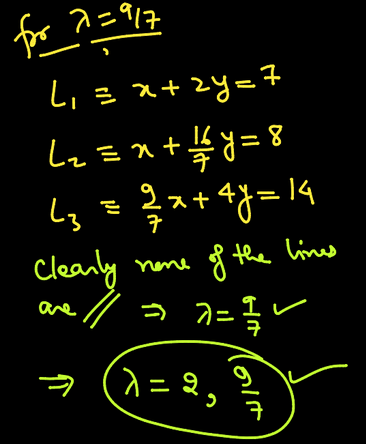 for λ = 9/7
L₁ ≡ x + 2y = 7
L₂ ≡ x + 16/7 y = 8
L₃ ≡ 9/7 x + 4y = 14
Clearly none of the lines
are // ⇒ λ = 9/7 ✓
⇒ λ = 2, 9/7 ✓